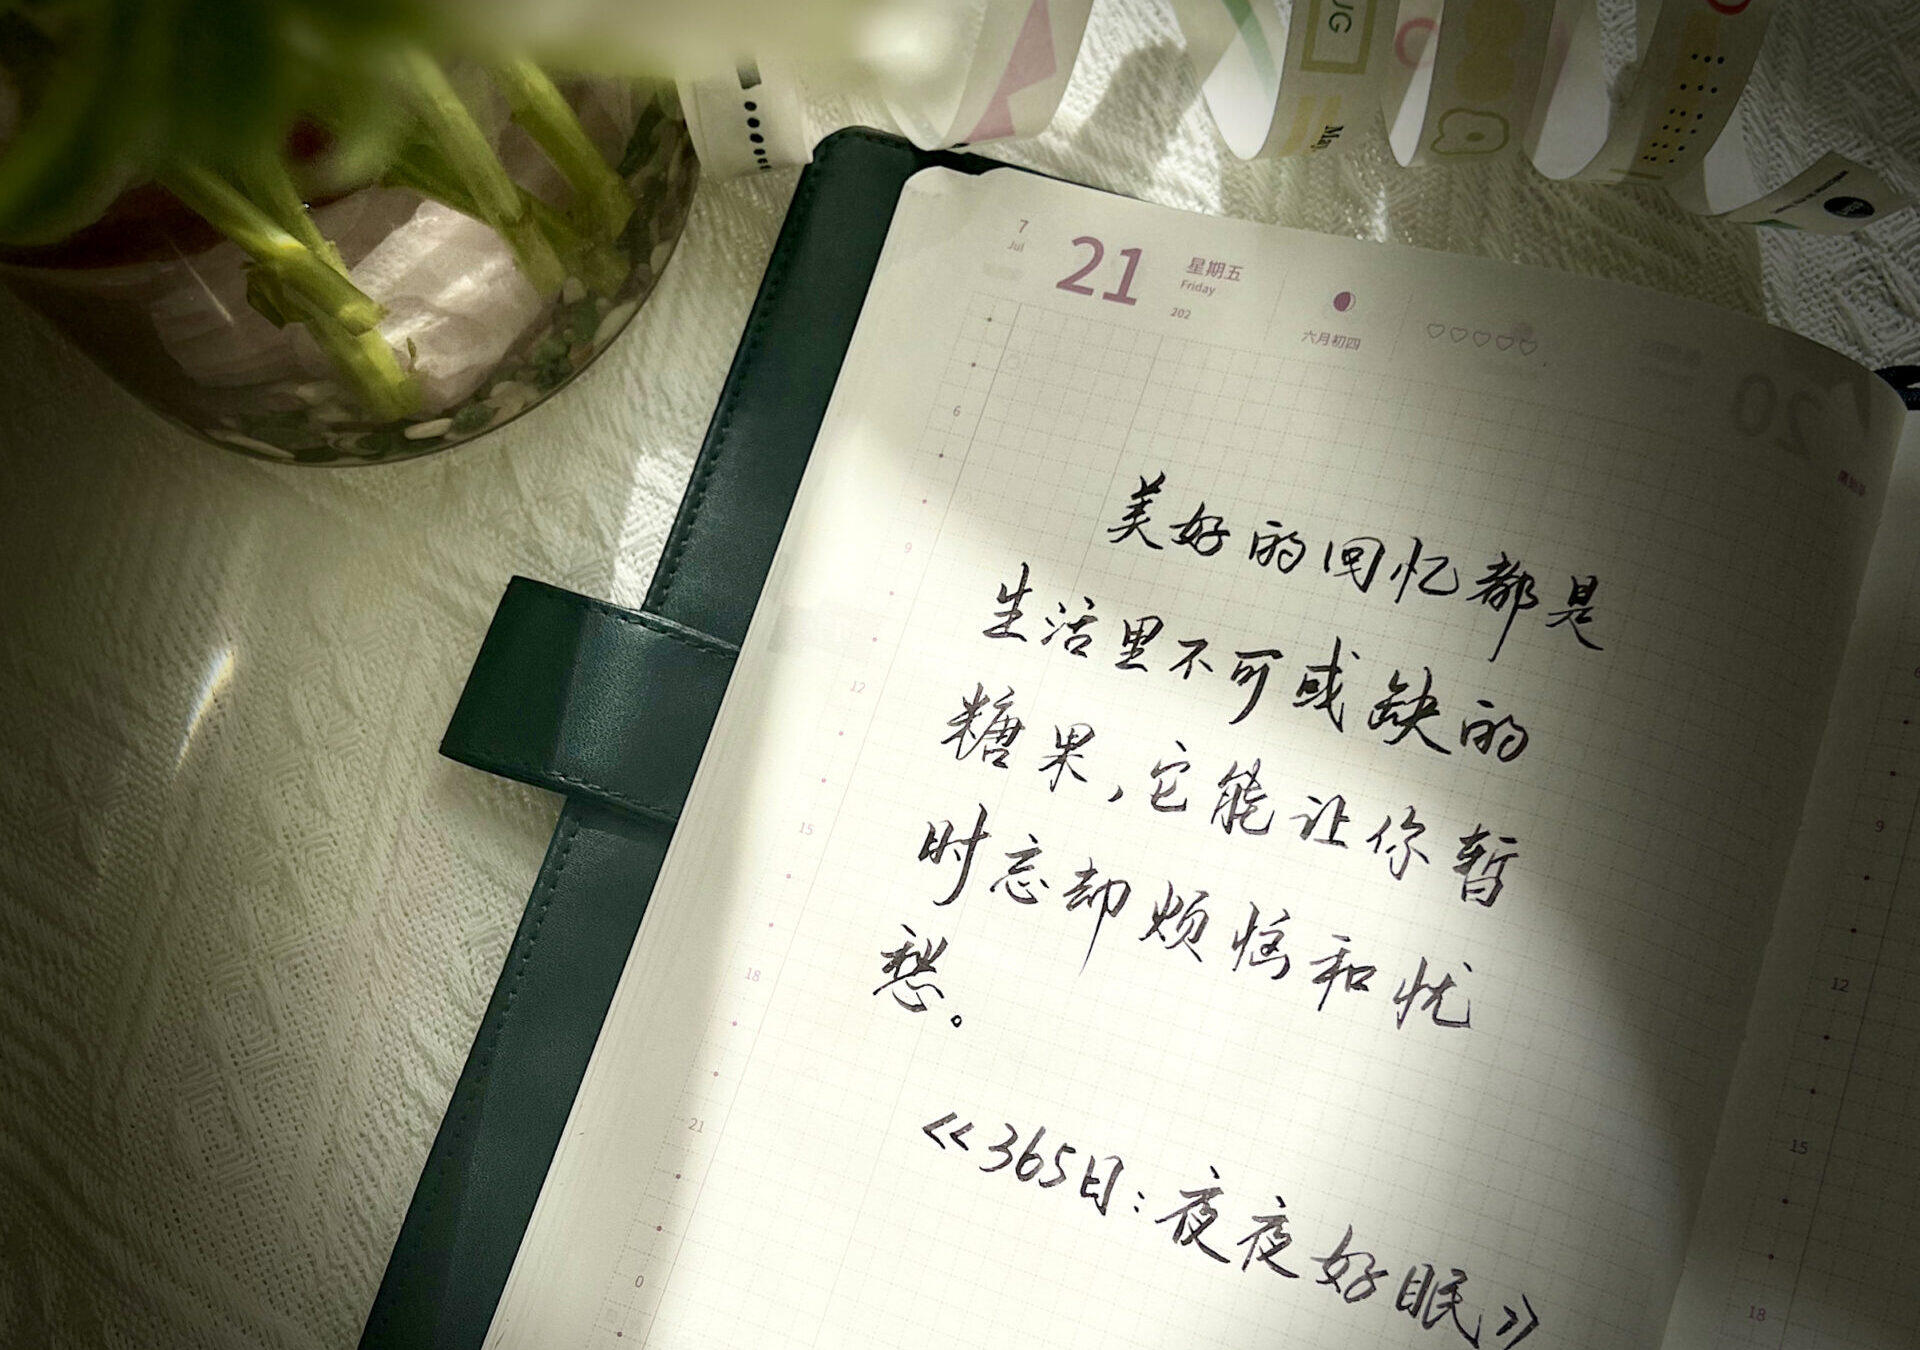 UG
May
7
Jul
21
星期五
Friday
202
六月初四
20
6
9
12
15
18
21
0
美好的回忆都是
生活里不可或缺的
糖果，它能让你暂
时忘却烦恼和忧
愁。
《365日：夜夜好眠》
9
12
15
18